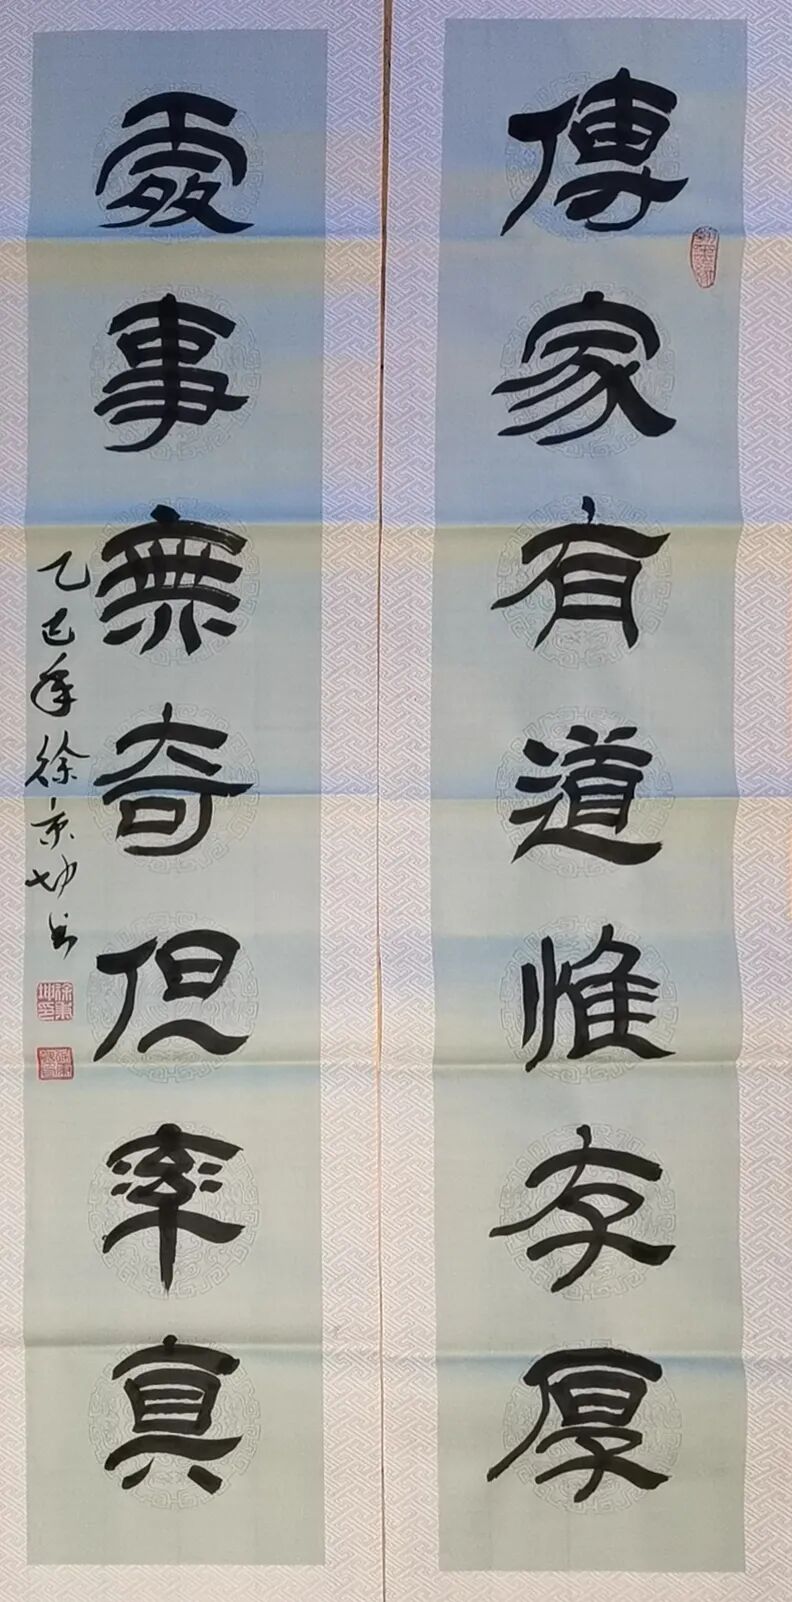 傳家有道惟存厚
處事無奇但率真
乙巳年徐京坤書